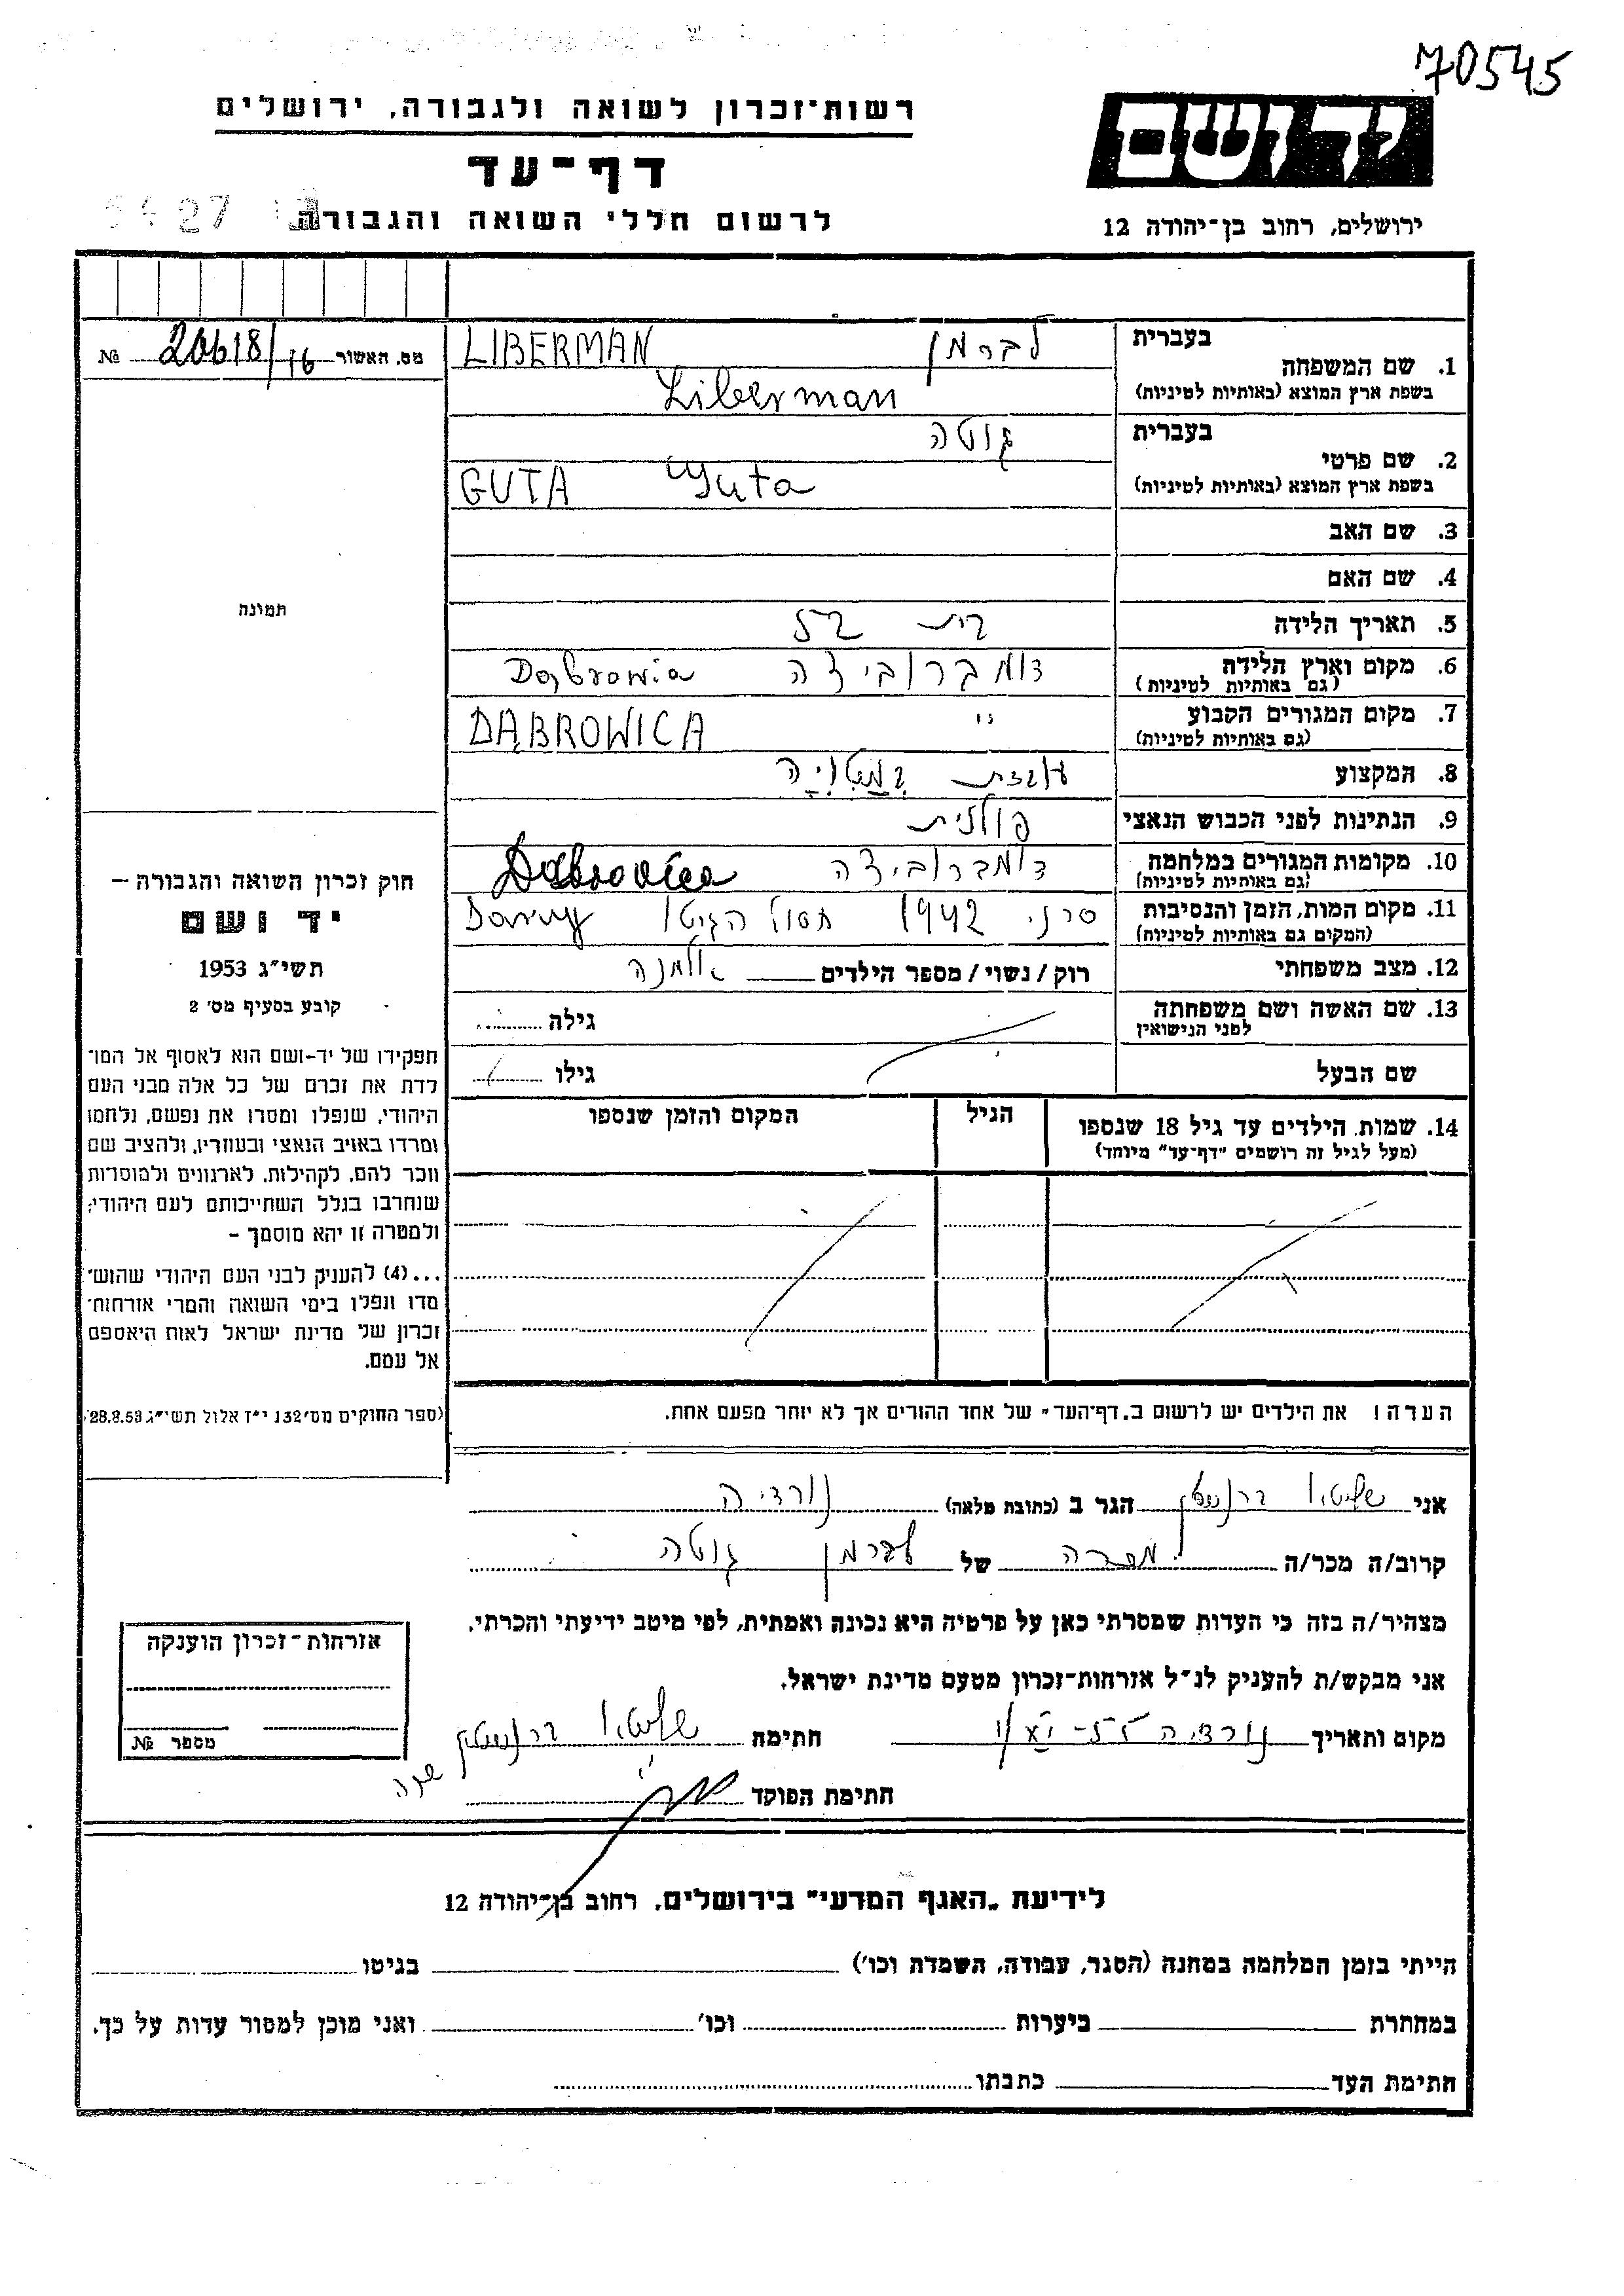 70545
ידושם
ירושלים, רחוב בן־יהודה 12
רשות־זכרון לשואה ולגבורה, ירושלים
דף־עד
לרשום חללי השואה והגבורה
5427
מס. האשור 20618/16 №
תמונה
1. שם המשפחה בעברית לברמן LIBERMAN
בשפת ארץ המוצא (באותיות לטיניות) Liberman
2. שם פרטי בעברית גוטה
בשפת ארץ המוצא (באותיות לטיניות) Guta GUTA
3. שם האב
4. שם האם
5. תאריך הלידה בת 52
6. מקום וארץ הלידה דומברוביצה Dąbrowia
(גם באותיות לטיניות)
7. מקום המגורים הקבוע " DĄBROWICA
(גם באותיות לטיניות)
8. המקצוע עובדת
9. הנתינות לפני הכבוש הנאצי פולנית
10. מקומות המגורים במלחמה דומברוביצה
(גם באותיות לטיניות)
11. מקום המות, הזמן והנסיבות סרני 1942 חסול הגיטו
(המקום גם באותיות לטיניות)
12. מצב משפחתי רוק / נשוי / מספר הילדים אלמנה
13. שם האשה ושם משפחתה גילה
לפני הנישואין
שם הבעל גילו
14. שמות הילדים עד גיל 18 שנספו הגיל המקום והזמן שנספו
(מעל לגיל זה רושמים "דף־עד" מיוחד)
הערה ! את הילדים יש לרשום ב„דף־העד" של אחד ההורים אך לא יותר מפעם אחת.
חוק זכרון השואה והגבורה –
יד ושם
תשי״ג 1953
קובע בסעיף מס׳ 2
תפקידו של יד-ושם הוא לאסוף אל המו־
לדת את זכרם של כל אלה מבני העם
היהודי, שנפלו ומסרו את נפשם, נלחמו
ומרדו באויב הנאצי ובעוזריו, ולהציב שם
וזכר להם, לקהילות, לארגונים ולמוסדות
שנחרבו בגלל השתייכותם לעם היהודי;
ולמטרה זו יהא מוסמך –
...(4) להעניק לבני העם היהודי שהוש־
מדו ונפלו בימי השואה והמרי אזרחות־
זכרון של מדינת ישראל לאות היאספם
אל עמם.
(ספר החוקים מס׳ 132 י״ז אלול תשי״ג 28.8.53)
אני הגר ב (כתובת מלאה) נורדיה
קרוב/ה מכר/ה מכרה של לברמן גוטה
מצהיר/ה בזה כי העדות שמסרתי כאן על פרטיה היא נכונה ואמתית, לפי מיטב ידיעתי והכרתי.
אני מבקש/ת להעניק לנ״ל אזרחות־זכרון מטעם מדינת ישראל.
מקום ותאריך נורדיה חתימה
חתימת הפוקד
אזרחות־זכרון הוענקה
מספר №
לידיעת „האגף המדעי" בירושלים, רחוב בן־יהודה 12
הייתי בזמן המלחמה במחנה (הסגר, עבודה, השמדה וכו׳) בגיטו
במחתרת ביערות וכו׳ ואני מוכן למסור עדות על כך.
חתימת העד כתבתו